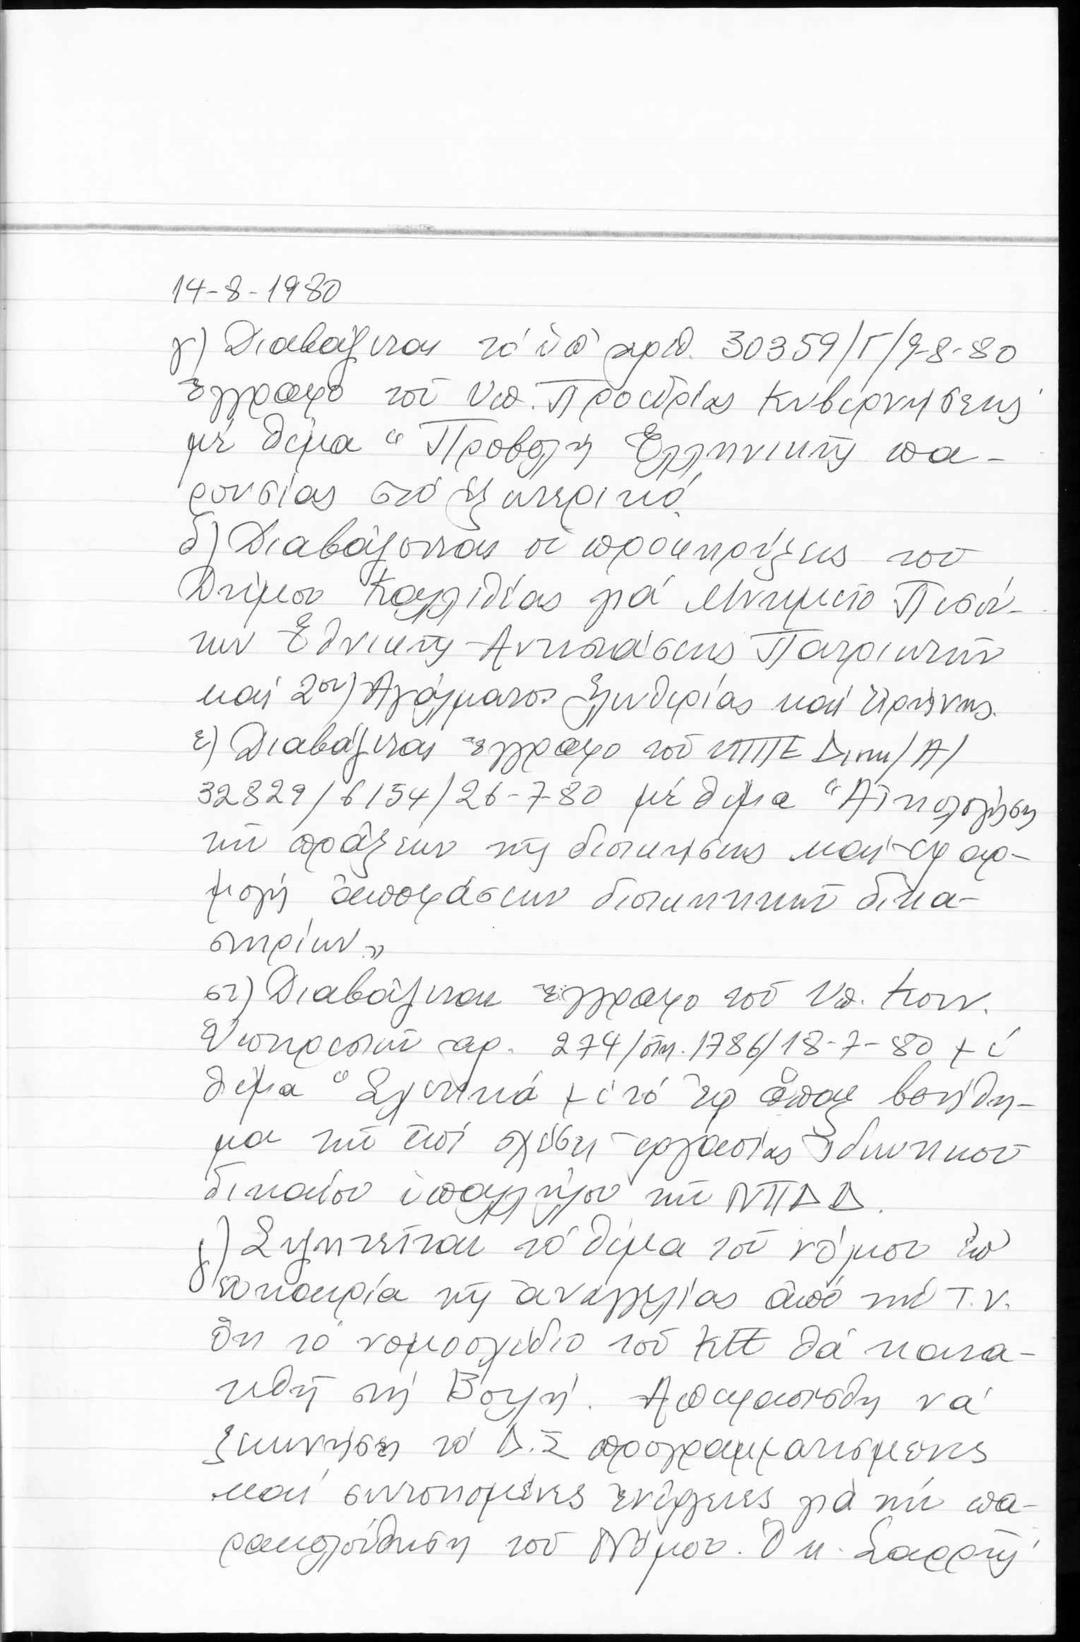 14-8-1980
γ) Διαβάζεται τό ὑπ' ἀριθ. 30359/Γ/9-8-80
ἔγγραφο τοῦ Υπ. Προεδρίας Κυβερνήσεως
μέ θέμα "Προβολή Ἑλληνικῆς πα-
ρουσίας στό ἐξωτερικό"
δ) Διαβάζονται οἱ προκηρύξεις τοῦ
Δήμου Καλλιθέας γιά Μνημεῖο Πεσόν-
των Ἐθνικῆς Ἀντιστάσεως Πατριωτῶν
καί 2ον) Ἀγάλματος Ἐλευθερίας καί Εἰρήνης.
ε) Διαβάζεται ἔγγραφο τοῦ ΥΠΠΕ Διοικ/Α/
32829/6154/26-7-80 μέ θέμα "Αἰτιολόγηση
τῶν πράξεων τῆς διοικήσεως καί ἐφαρ-
μογή ἀποφάσεων διοικητικῶν δικα-
στηρίων"
στ) Διαβάζεται ἔγγραφο τοῦ Υπ. Κοιν.
Ὑπηρεσιῶν ἀρ. 274/οικ.1786/18-7-80 μέ
θέμα "Σχετικά μέ τό ἐφ' ἅπαξ βοήθη-
μα τῶν ἐπί σχέσει ἐργασίας ἰδιωτικοῦ
δικαίου ὑπαλλήλων τῶν ΝΠΔΔ.
ζ) Συζητεῖται τό θέμα τοῦ νόμου ἐπ'
εὐκαιρία τῆς ἀναγγελίας ἀπό τήν T.V.
ὅτι τό νομοσχέδιο τοῦ ΚΕΕ θά κατα-
τεθῆ στή Βουλή. Ἀποφασίσθη νά
ξεκινήσει τό Δ.Σ προγραμματισμένες
καί συντονισμένες ἐνέργειες γιά τήν πα-
ρακολούθηση τοῦ Νόμου. Ὁ κ. Σαρρής